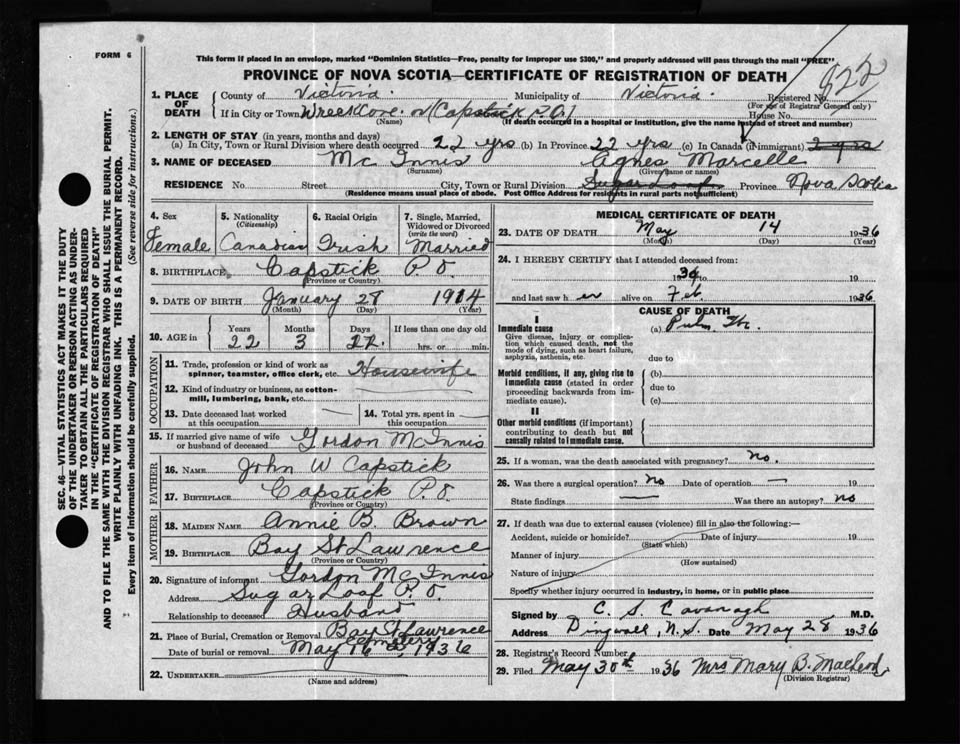 FORM 6
This form if placed in an envelope, marked "Dominion Statistics—Free, penalty for improper use $300," and properly addressed will pass through the mail "FREE"
PROVINCE OF NOVA SCOTIA—CERTIFICATE OF REGISTRATION OF DEATH
522
1. PLACE OF DEATH County of Victoria Municipality of Victoria Registered No.
(For use of Registrar General only)
If in City or Town Wreck Cove Capstick P.O. House No.
(Name) (If death occurred in a hospital or institution, give the name instead of street and number)
2. LENGTH OF STAY (in years, months and days)
(a) In City, Town or Rural Division where death occurred 22 yrs (b) In Province 22 yrs (c) In Canada (if immigrant) 22 yrs
3. NAME OF DECEASED Mc Innis Agnes Marcelle
(Surname) (Given name or names)
RESIDENCE No. Street City, Town or Rural Division Sugar Loaf Province Nova Scotia
(Residence means usual place of abode. Post Office Address for residents in rural parts not sufficient)
4. Sex Female
5. Nationality (Citizenship) Canadian
6. Racial Origin Irish
7. Single, Married, Widowed or Divorced (write the word) Married
8. BIRTHPLACE Capstick P.O.
(Province or Country)
9. DATE OF BIRTH January 28 1914
(Month) (Day) (Year)
10. AGE in Years 22 Months 3 Days If less than one day old hrs. or min.
OCCUPATION
11. Trade, profession or kind of work as spinner, teamster, office clerk, etc. Housewife
12. Kind of industry or business, as cotton-mill, lumbering, bank, etc. —
13. Date deceased last worked at this occupation —
14. Total yrs. spent in this occupation —
15. If married give name of wife or husband of deceased Gordon McInnis
FATHER
16. NAME John W Capstick
17. BIRTHPLACE Capstick P.O.
(Province or Country)
MOTHER
18. MAIDEN NAME Annie B. Brown
19. BIRTHPLACE Bay St Lawrence
(Province or Country)
20. Signature of informant Gordon McInnis
Address Sugar Loaf P.O.
Relationship to deceased Husband
21. Place of Burial, Cremation or Removal Bay St Lawrence
Cemetery
Date of burial or removal May 16 1936
22. UNDERTAKER
(Name and address)
MEDICAL CERTIFICATE OF DEATH
23. DATE OF DEATH May 14 1936
(Month) (Day) (Year)
24. I HEREBY CERTIFY that I attended deceased from:
1934 to 19
and last saw her alive on Feb. 1936
CAUSE OF DEATH
I
Immediate cause (a) Pulm Tbc.
Give disease, injury or complication which caused death, not the mode of dying, such as heart failure, asphyxia, asthenia, etc.
due to
Morbid conditions, if any, giving rise to immediate cause (stated in order proceeding backwards from immediate cause).
(b)
due to
(c)
II
Other morbid conditions (if important) contributing to death but not causally related to immediate cause.
25. If a woman, was the death associated with pregnancy? No.
26. Was there a surgical operation? No Date of operation —
State findings — Was there an autopsy? No
27. If death was due to external causes (violence) fill in also the following:—
Accident, suicide or homicide? Date of injury 19
(State which)
Manner of injury
(How sustained)
Nature of injury
Specify whether injury occurred in industry, in home, or in public place
Signed by C. S. Cavanagh M.D.
Address Dingwall, N.S. Date May 28 1936
28. Registrar's Record Number
29. Filed May 30th 1936 Mrs Mary B. MacLeod
(Division Registrar)
SEC. 46—VITAL STATISTICS ACT MAKES IT THE DUTY
OF THE UNDERTAKER OR PERSON ACTING AS UNDERTAKER TO OBTAIN ALL THE PARTICULARS REQUIRED
IN THE "CERTIFICATE OF REGISTRATION OF DEATH"
AND TO FILE THE SAME WITH THE DIVISION REGISTRAR WHO SHALL ISSUE THE BURIAL PERMIT.
WRITE PLAINLY WITH UNFADING INK. THIS IS A PERMANENT RECORD.
Every item of Information should be carefully supplied. (See reverse side for instructions.)